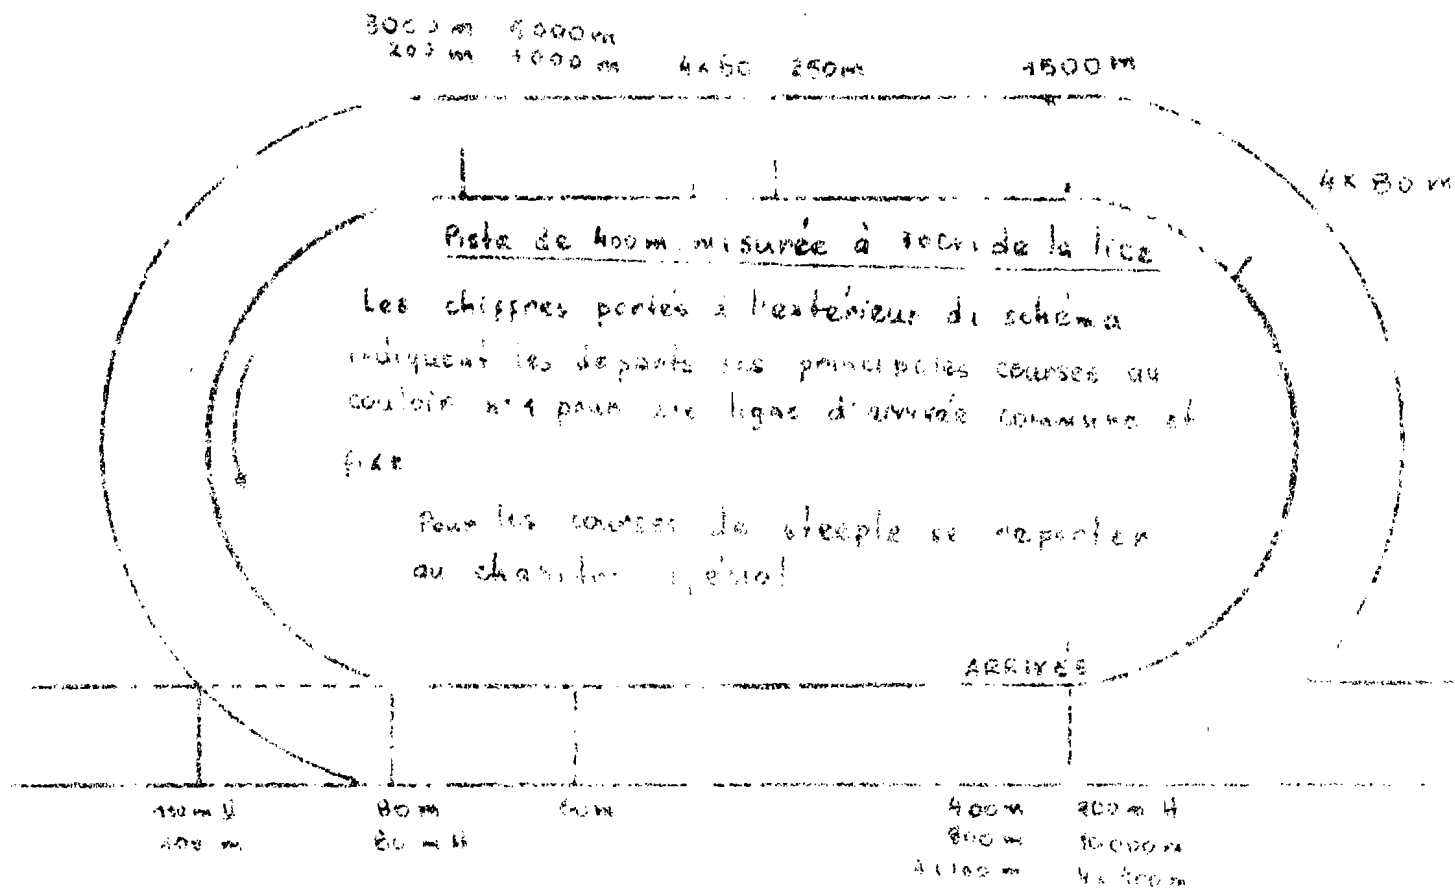 3000 m 5000 m
200 m 1000 m 4x60 250m 1500 m
4x80 m
Piste de 400m mesurée à de la lice
Les chiffres portés à l'extérieur du schéma
indiquent les départs des principales courses au
couloir pour une ligne d'arrivée commune et
fixe
Pour les courses de steeple se reporter
au
ARRIVÉE
110 m H 80 m
80 m H
400 m 200 m H
800 m 10.000 m
4x100 m 4x400 m